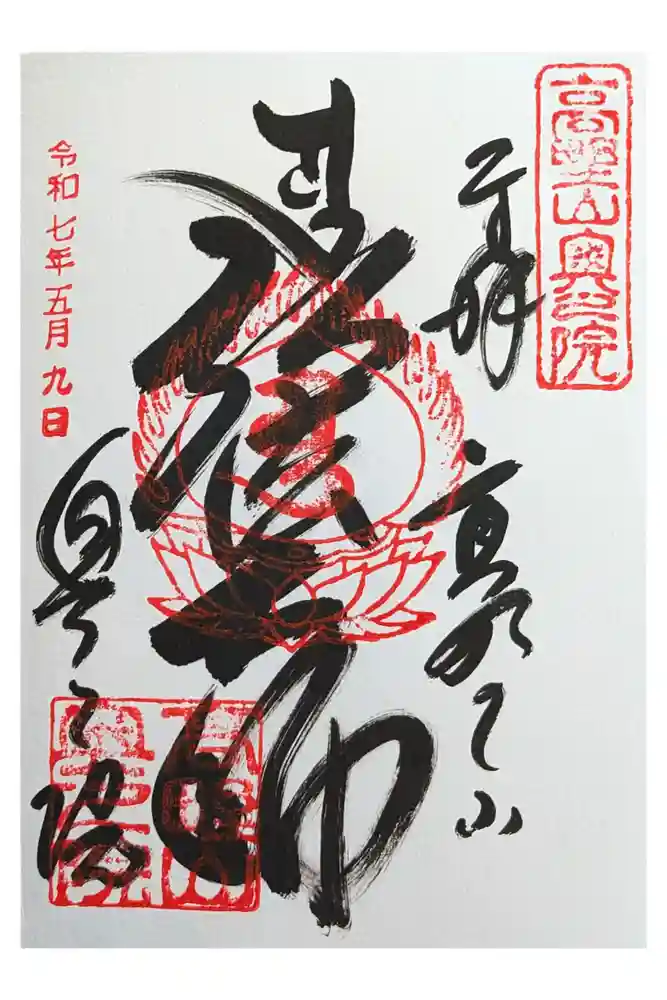 高野山奥之院
奉拝
高野山
大師
奥之院
高野山
奥之院
令和七年五月九日